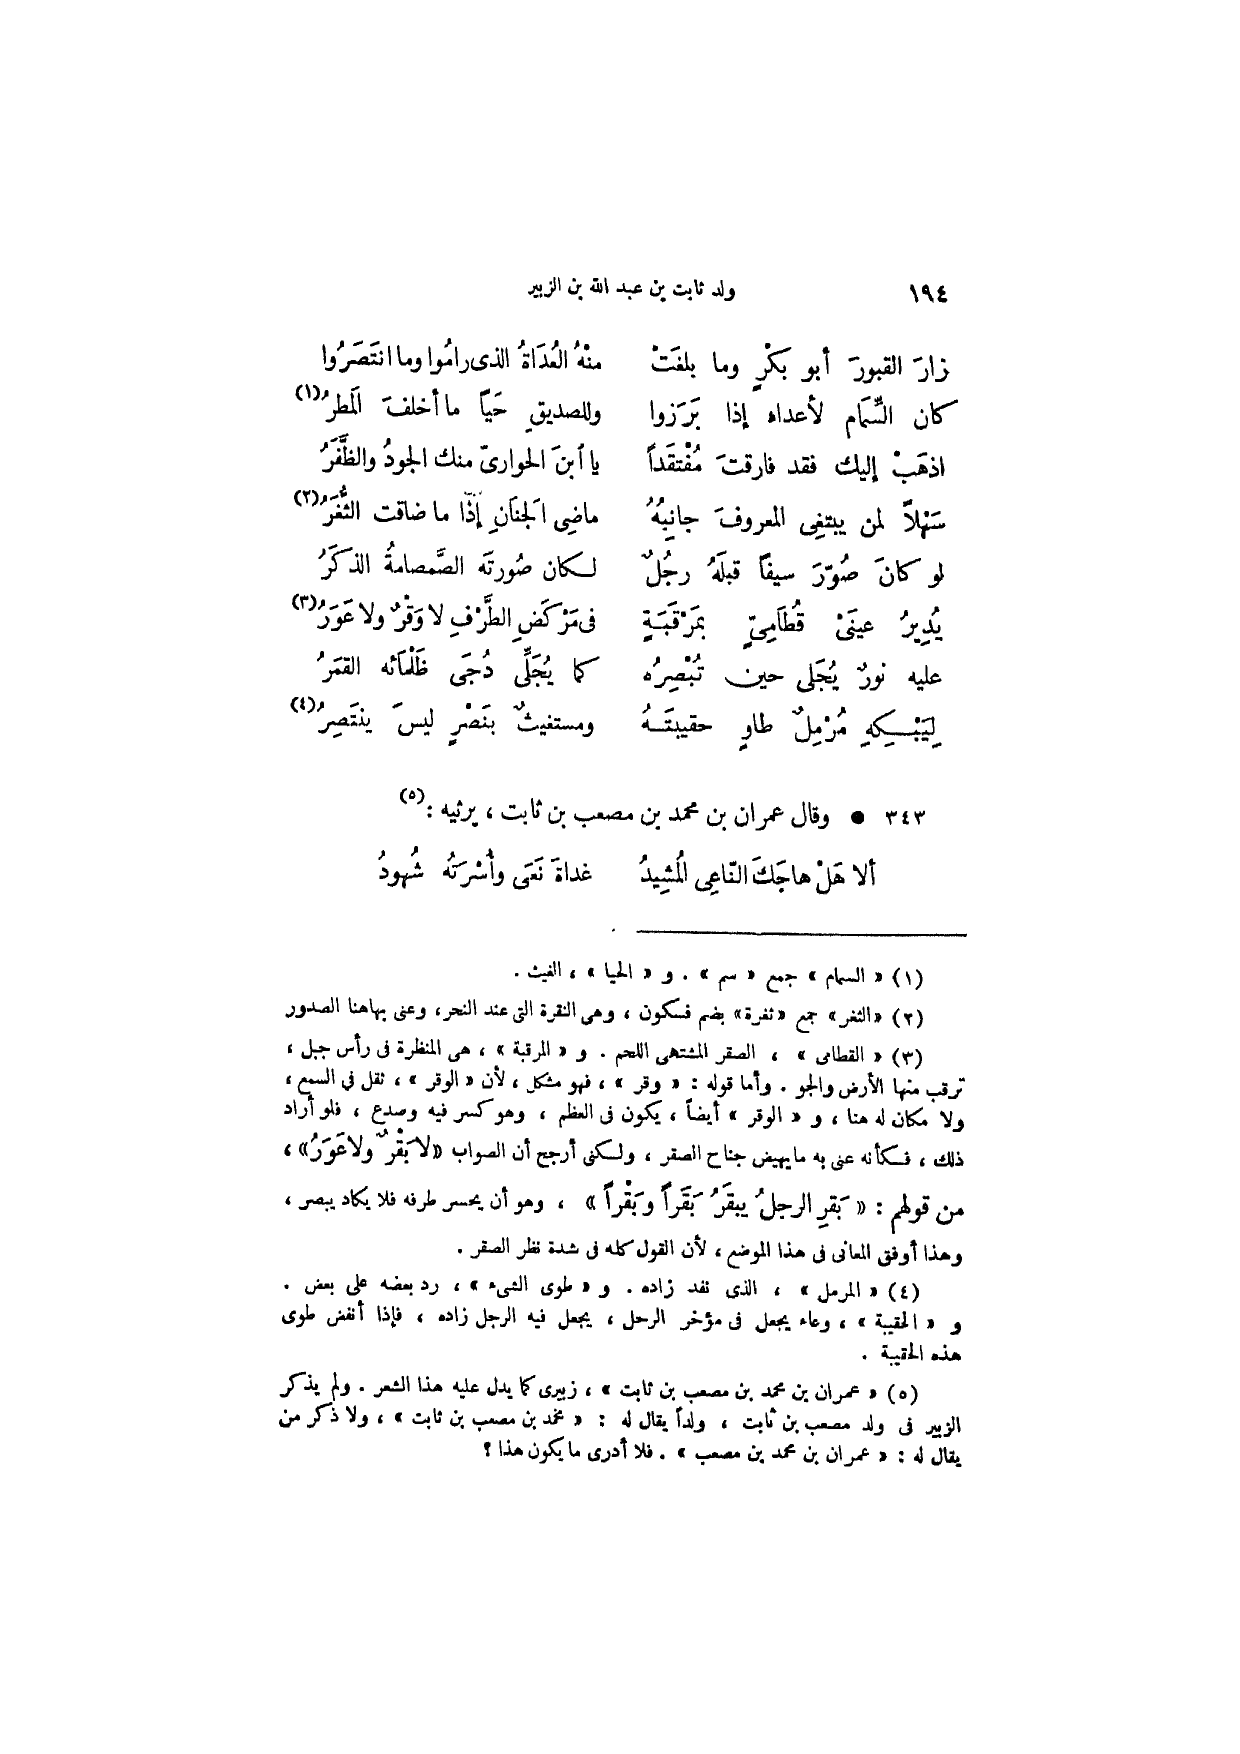 ١٩٤ ولد ثابت بن عبد الله بن الزبير
زارَ القبورَ أبو بَكْرٍ وما بلغَتْ منْهُ العُدَاةُ الذى رامُوا وما انتَصَرُوا
كان السِّمَام لأعداء إذا بَرَزوا وللصديقِ حَيًا ما أخلفَ المَطرُ(١)
اذهَبْ إليك فقد فارقتَ مُفْتقَداً يا ٱبنَ الحوارىّ منك الجودُ والظَّفَرُ
سَهْلاً لمن يبتغِى المعروفَ جانِبُهُ ماضِى الجنَانِ إذَا ما ضاقت الثُّغَرُ(٢)
لو كانَ صُوّرَ سيفًا قبلَهُ رجُلٌ لكان صُورتَه الصَّمصامةُ الذكَرُ
يُدِيرُ عينَىْ قُطَامِىٍّ بمَرْقَبَةٍ فى مَرْكَضِ الطَّرْفِ لا وَقْرٌ ولا عَوَرُ(٣)
عليه نورٌ يُجَلى حين تُبْصِرُه كما يُجَلِّى دُجَى ظَلْمَائه القمَرُ
لِيَبْكِهِ مُرْمِلٌ طاوٍ حقيبتَهُ ومستغيثٌ بنَصْرٍ ليسَ ينتَصِرُ(٤)
٣٤٣ • وقال عمران بن محمد بن مصعب بن ثابت ، يرثيه :(٥)
ألا هَلْ هاجَكَ النّاعِى المُشِيدُ غداةَ نَعَى وأُسْرَتُه شُهودُ
(١) « السمام » جمع « سم » . و « الحيا » ، الغيث .
(٢) «الثغر» جمع «ثغرة» بضم فسكون ، وهى النقرة التى عند النحر، وعنى بهاهنا الصدور
(٣) « القطامى » ، الصقر المشتهى اللحم . و « المرقبة » ، هى المنظرة فى رأس جبل ،
ترقب منها الأرض والجو . وأما قوله : « وقر » ، فهو مشكل ، لأن « الوقر » ، ثقل فى السمع ،
ولا مكان له هنا ، و « الوقر » أيضاً ، يكون فى العظم ، وهو كسر فيه وصدع ، فلو أراد
ذلك ، فكأنه عنى به ما يهيض جناح الصقر ، ولكنى أرجح أن الصواب «لا بَقْرٌ ولا عَوَرُ» ،
من قولهم : « بَقِرِ الرجلُ يبقَرُ بَقَراً وبَقْراً » ، وهو أن يحسر طرفه فلا يكاد يبصر ،
وهذا أوفق المعانى فى هذا الموضع ، لأن القول كله فى شدة نظر الصقر .
(٤) « المرمل » ، الذى نفد زاده . و « طوى الشىء » ، رد بعضه على بعض .
و « الحقيبة » ، وعاء يجعل فى مؤخر الرحل ، يجعل فيه الرجل زاده ، فإذا أنفض طوى
هذه الحقيبة .
(٥) « عمران بن محمد بن مصعب بن ثابت » ، زبيرى كما يدل عليه هذا الشعر . ولم يذكر
الزبير فى ولد مصعب بن ثابت ، ولداً يقال له : « محمد بن مصعب بن ثابت » ، ولا ذكر من
يقال له : « عمران بن محمد بن مصعب » . فلا أدرى ما يكون هذا ؟